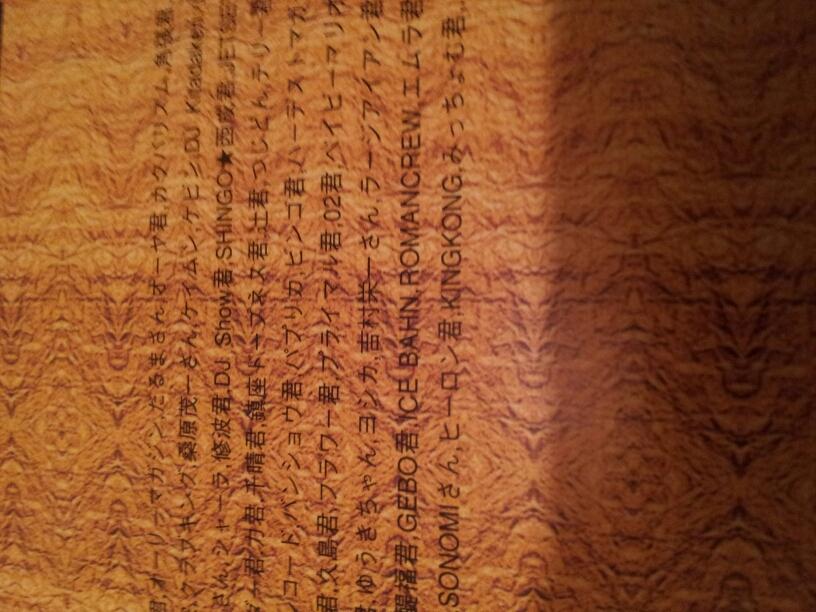 君,オーリブマガジン,だるまさん,オーヤ君,カクバリズム,角張君,
クラブキング,桑原茂一さん,ケイムシ,ケビン,DJ Kitadaken
さん,シャーラ,修波君,DJ Show君,SHINGO★西成君,JET
君,力君,千晴君,鎮座ドープネス君,辻君,つじどん,テリー君
レコード,バンショウ君,パプリカ,ヒンゴ君,ハーデストマガ
君,久島君,フラワー君,プライマル君,02君,ベイビーマリオ
ゆうきちゃん,ヨシカ,吉村栄一さん,ラージアイアン君
君,GEBO君,ICE BAHN,ROMANCREW,エムラ君
SONOMIさん,ヒーロン君,KINGKONG,みっちょむ君,..